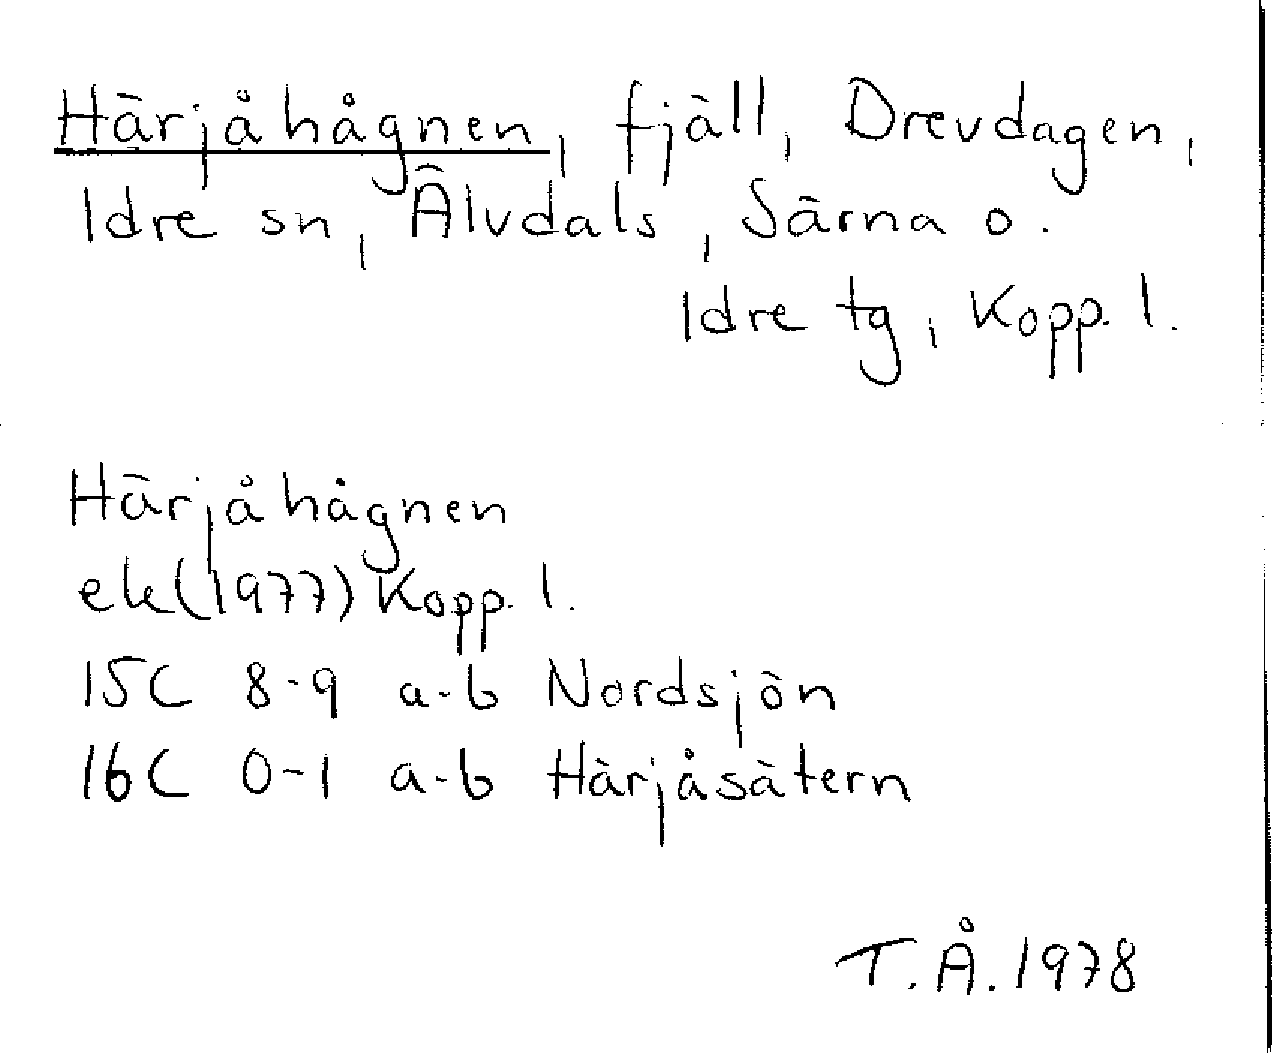 Härjåhågnen, fjäll, Drevdagen,
Idre sn, Älvdals, Särna o.
Idre tg, Kopp. l.
Härjåhågnen
ek(1977) Kopp. l.
15C 8-9 a-b Nordsjön
16C 0-1 a-b Härjåsätern
T.Å. 1978